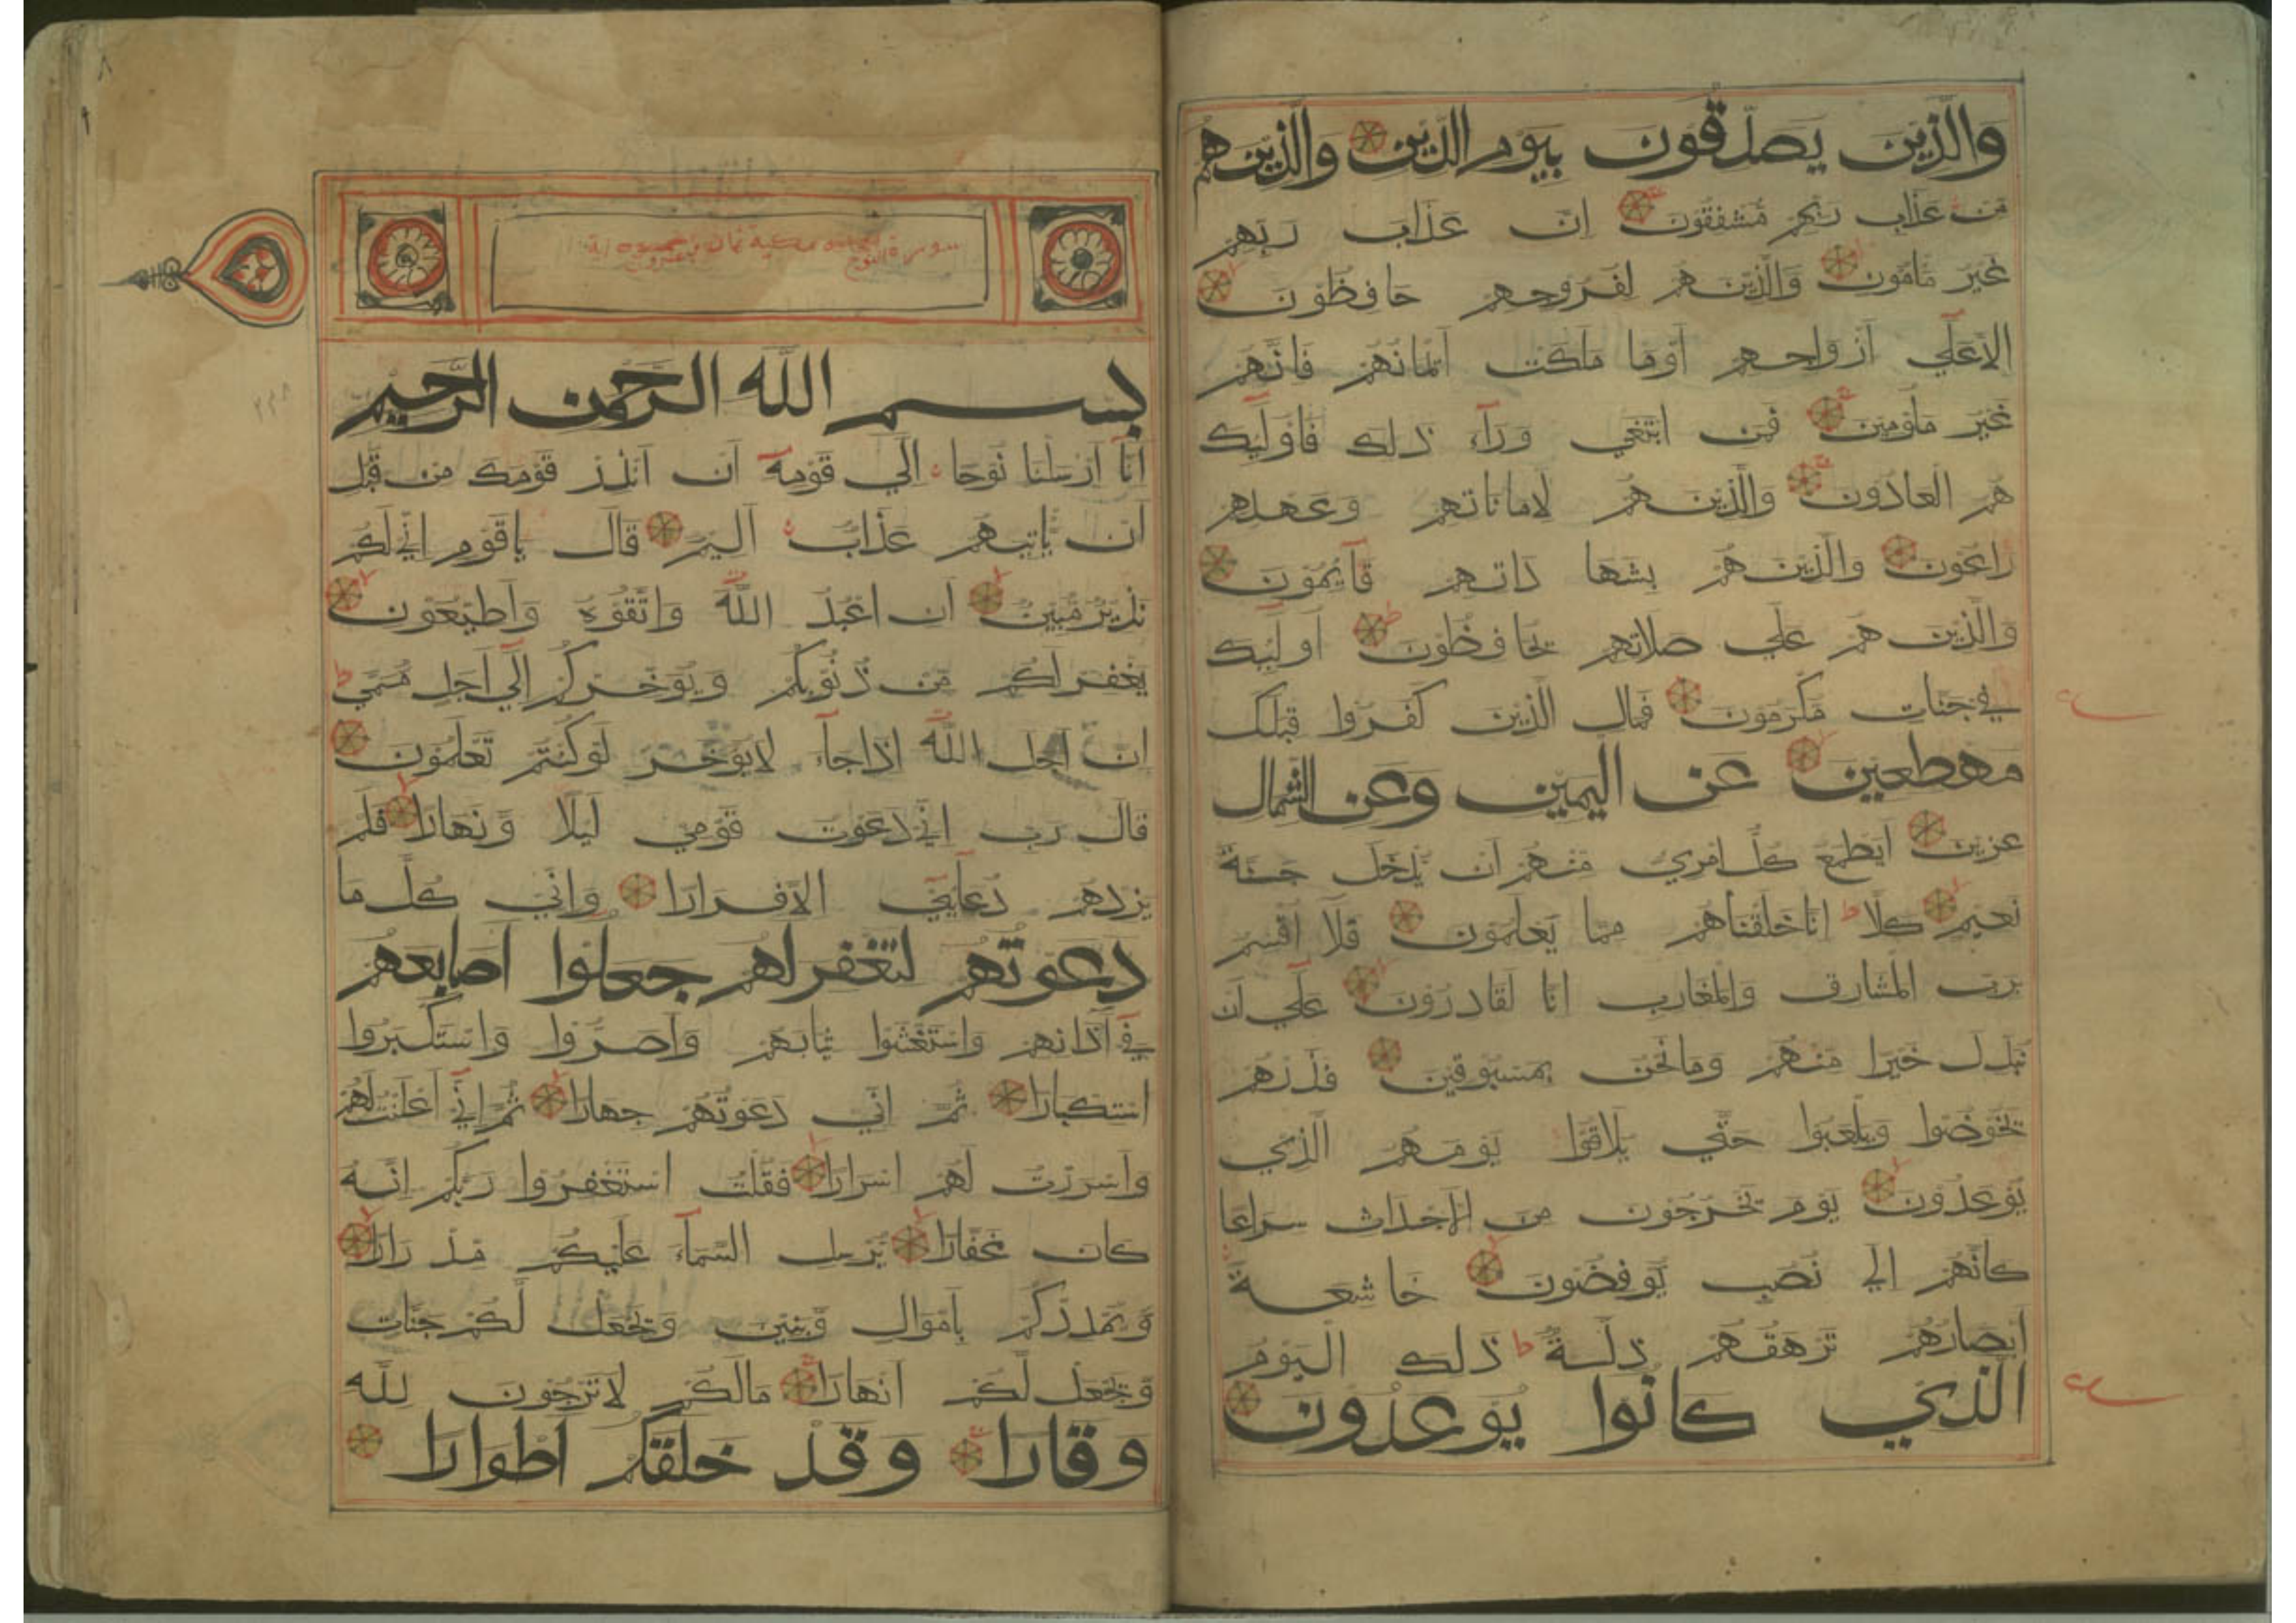 والذين يصدقون بيوم الدين والذين هم
من عذاب ربهم مشفقون ان عذاب ربهم
غير مامون والذين هم لفروجهم حافظون
الا علي ازواجهم اوما ملكت ايمانهم فانهم
غير ملومين فمن ابتغي ورآء ذلك فاوليك
هم العادون والذين هم لاماناتهم وعهدهم
راعون والذين هم بشهاداتهم قآيمون
والذين هم علي صلاتهم يحافظون اوليك
في جنات مكرمون فمال الذين كفروا قبلك
مهطعين عن اليمين وعن الشمال
عزين ايطمع كل امري منهم ان يدخل جنة
نعيم كلا انا خلقناهم مما يعلمون فلا اقسم
برب المشارق والمغارب انا لقادرون علي ان
نبدل خيرا منهم وما نحن بمسبوقين فذرهم
يخوضوا ويلعبوا حتي يلاقوا يومهم الذي
يوعدون يوم يخرجون من الاجداث سراعا
كانهم الي نصب يوفضون خاشعة
ابصارهم ترهقهم ذلة ط ذلك اليوم
الذي كانوا يوعدون
سورة النوح مكية ثمان وعشرون اية
بسم الله الرحمن الرحيم
انا ارسلنا نوحا الي قومه ان انذر قومك من قبل
ان ياتيهم عذاب اليم قال ياقوم اني لكم
نذير مبين ان اعبدُ الله واتقوه واطيعون
يغفر لكم من ذنوبكم ويوخركم الي اجل مسمي ط
ان اجل الله اذا جآء لايوخر لوكنتم تعلمون
قال رب اني دعوت قومي ليلا ونهارا فلم
يزدهم دعآيي الا فرارا واني كل ما
دعوتهم لتغفر لهم جعلوا اصابعهم
في آذانهم واستغشوا ثيابهم واصروا واستكبروا
استكبارا ثم اني دعوتهم جهارا ثم اني اعلنت لهم
واسررت لهم اسرارا فقلت استغفروا ربكم انه
كان غفارا يرسل السمآء عليكم مدرارا
ويمددكم باموال وبنين ويجعل لكم جنات
ويجعل لكم انهارا مالكم لاترجون لله
وقارا وقد خلقكم اطوارا